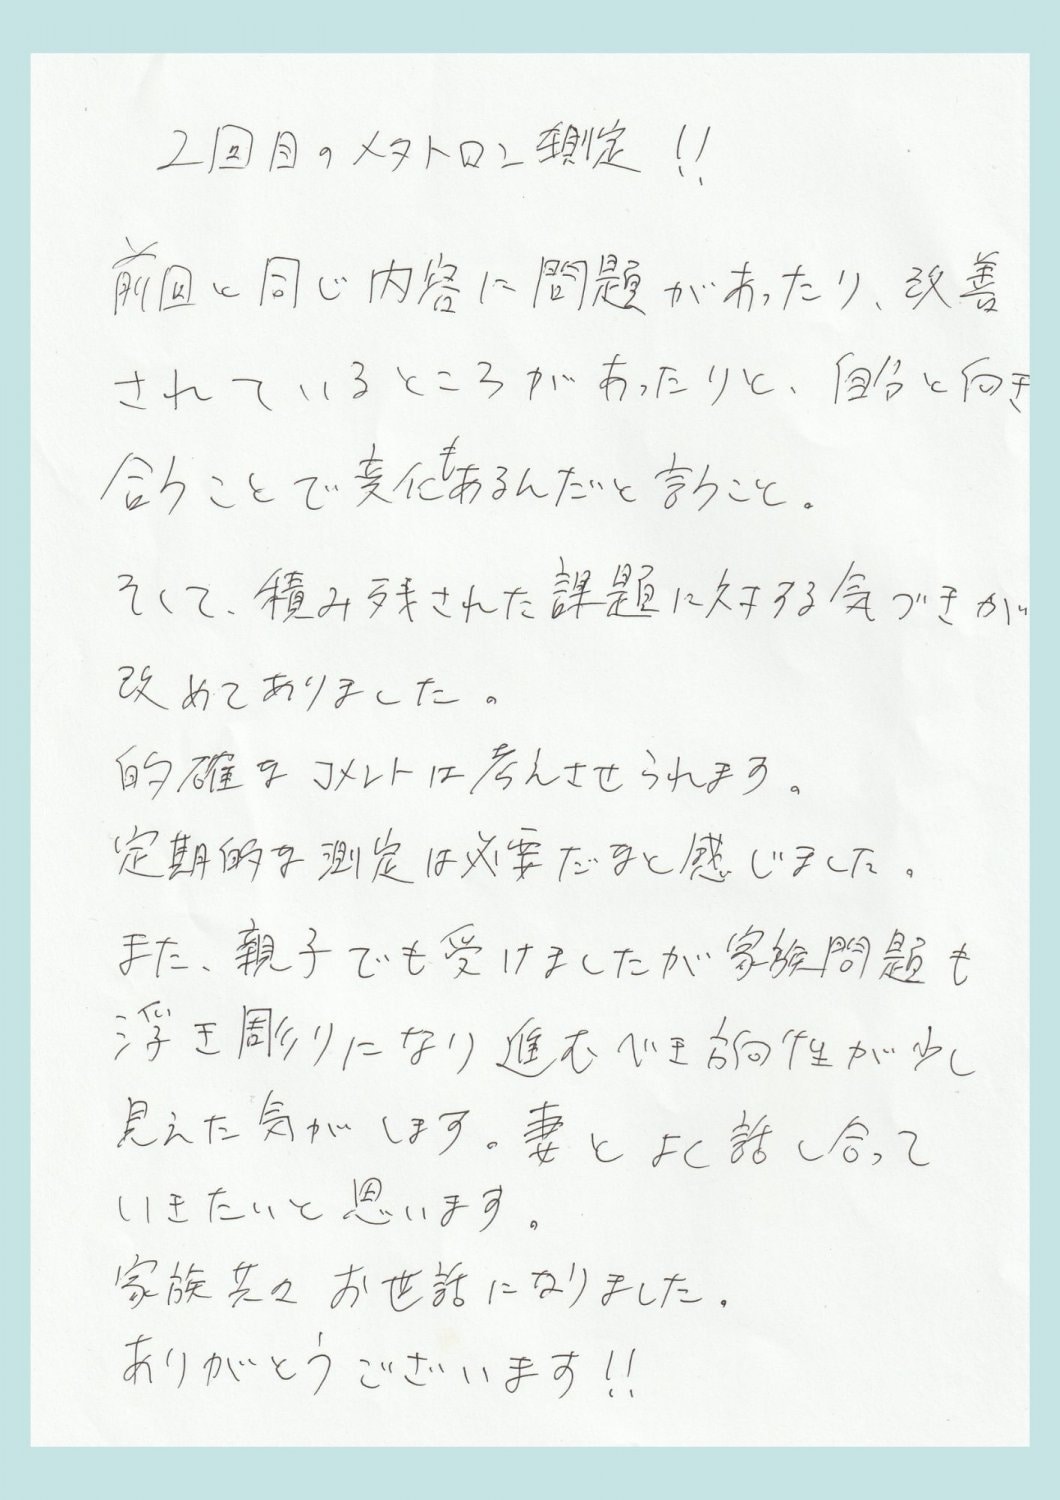 2回目のメタトロン測定!!
前回と同じ内容に問題があったり、改善
されているところがあったりと、自分と向き
合うことで変化もあるんだと言うこと。
そして、積み残された課題に対する気づきが
改めてありました。
的確なコメントは考えさせられます。
定期的な測定は必要だなと感じました。
また、親子でも受けましたが家族問題も
浮き彫りになり進むべき方向性が少し
見えた気がします。妻とよく話し合って
いきたいと思います。
家族共々お世話になりました。
ありがとうございます!!